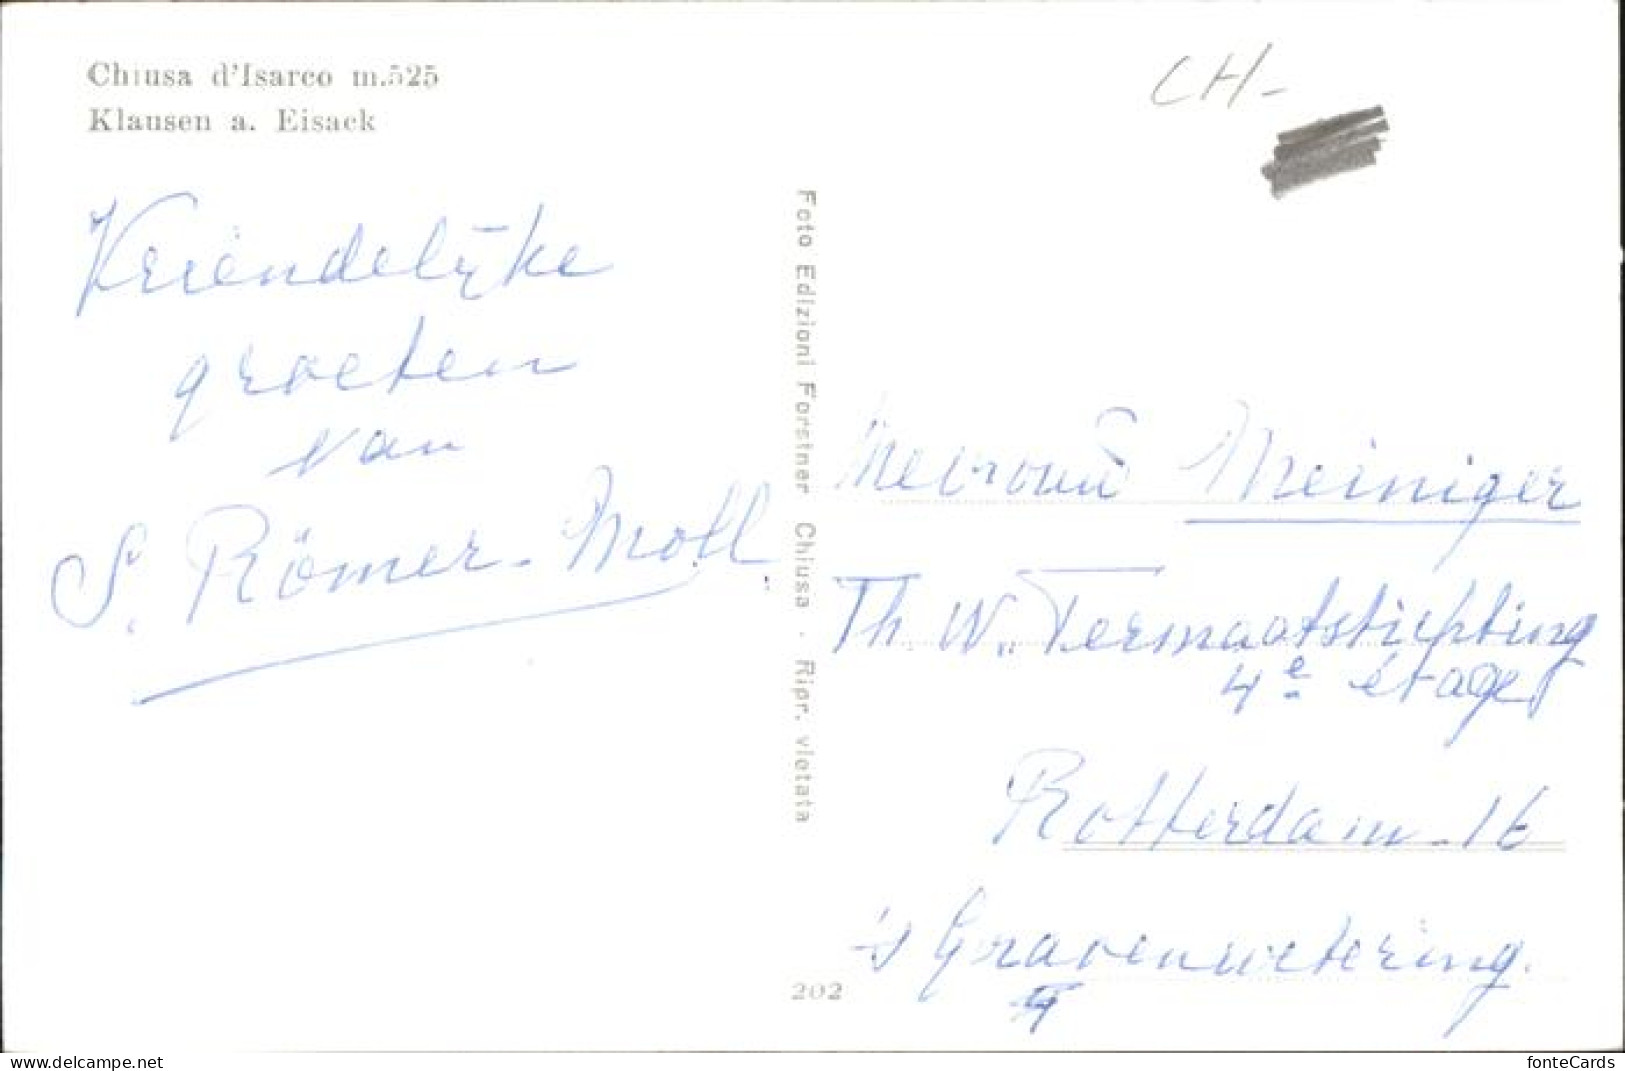 Chiusa d'Isarco m.525
Klausen a. Eisack
CH-
Vriendelijke
groeten
van
S. Römer-Moll.
Foto Edizioni Forstner Chiusa - Ripr. vietata
Mevrouw Meiniger
Th. W. Termaatstichting
4e étage
Rotterdam-16
's Gravenwetering.
202
www.delcampe.net
fonteCards